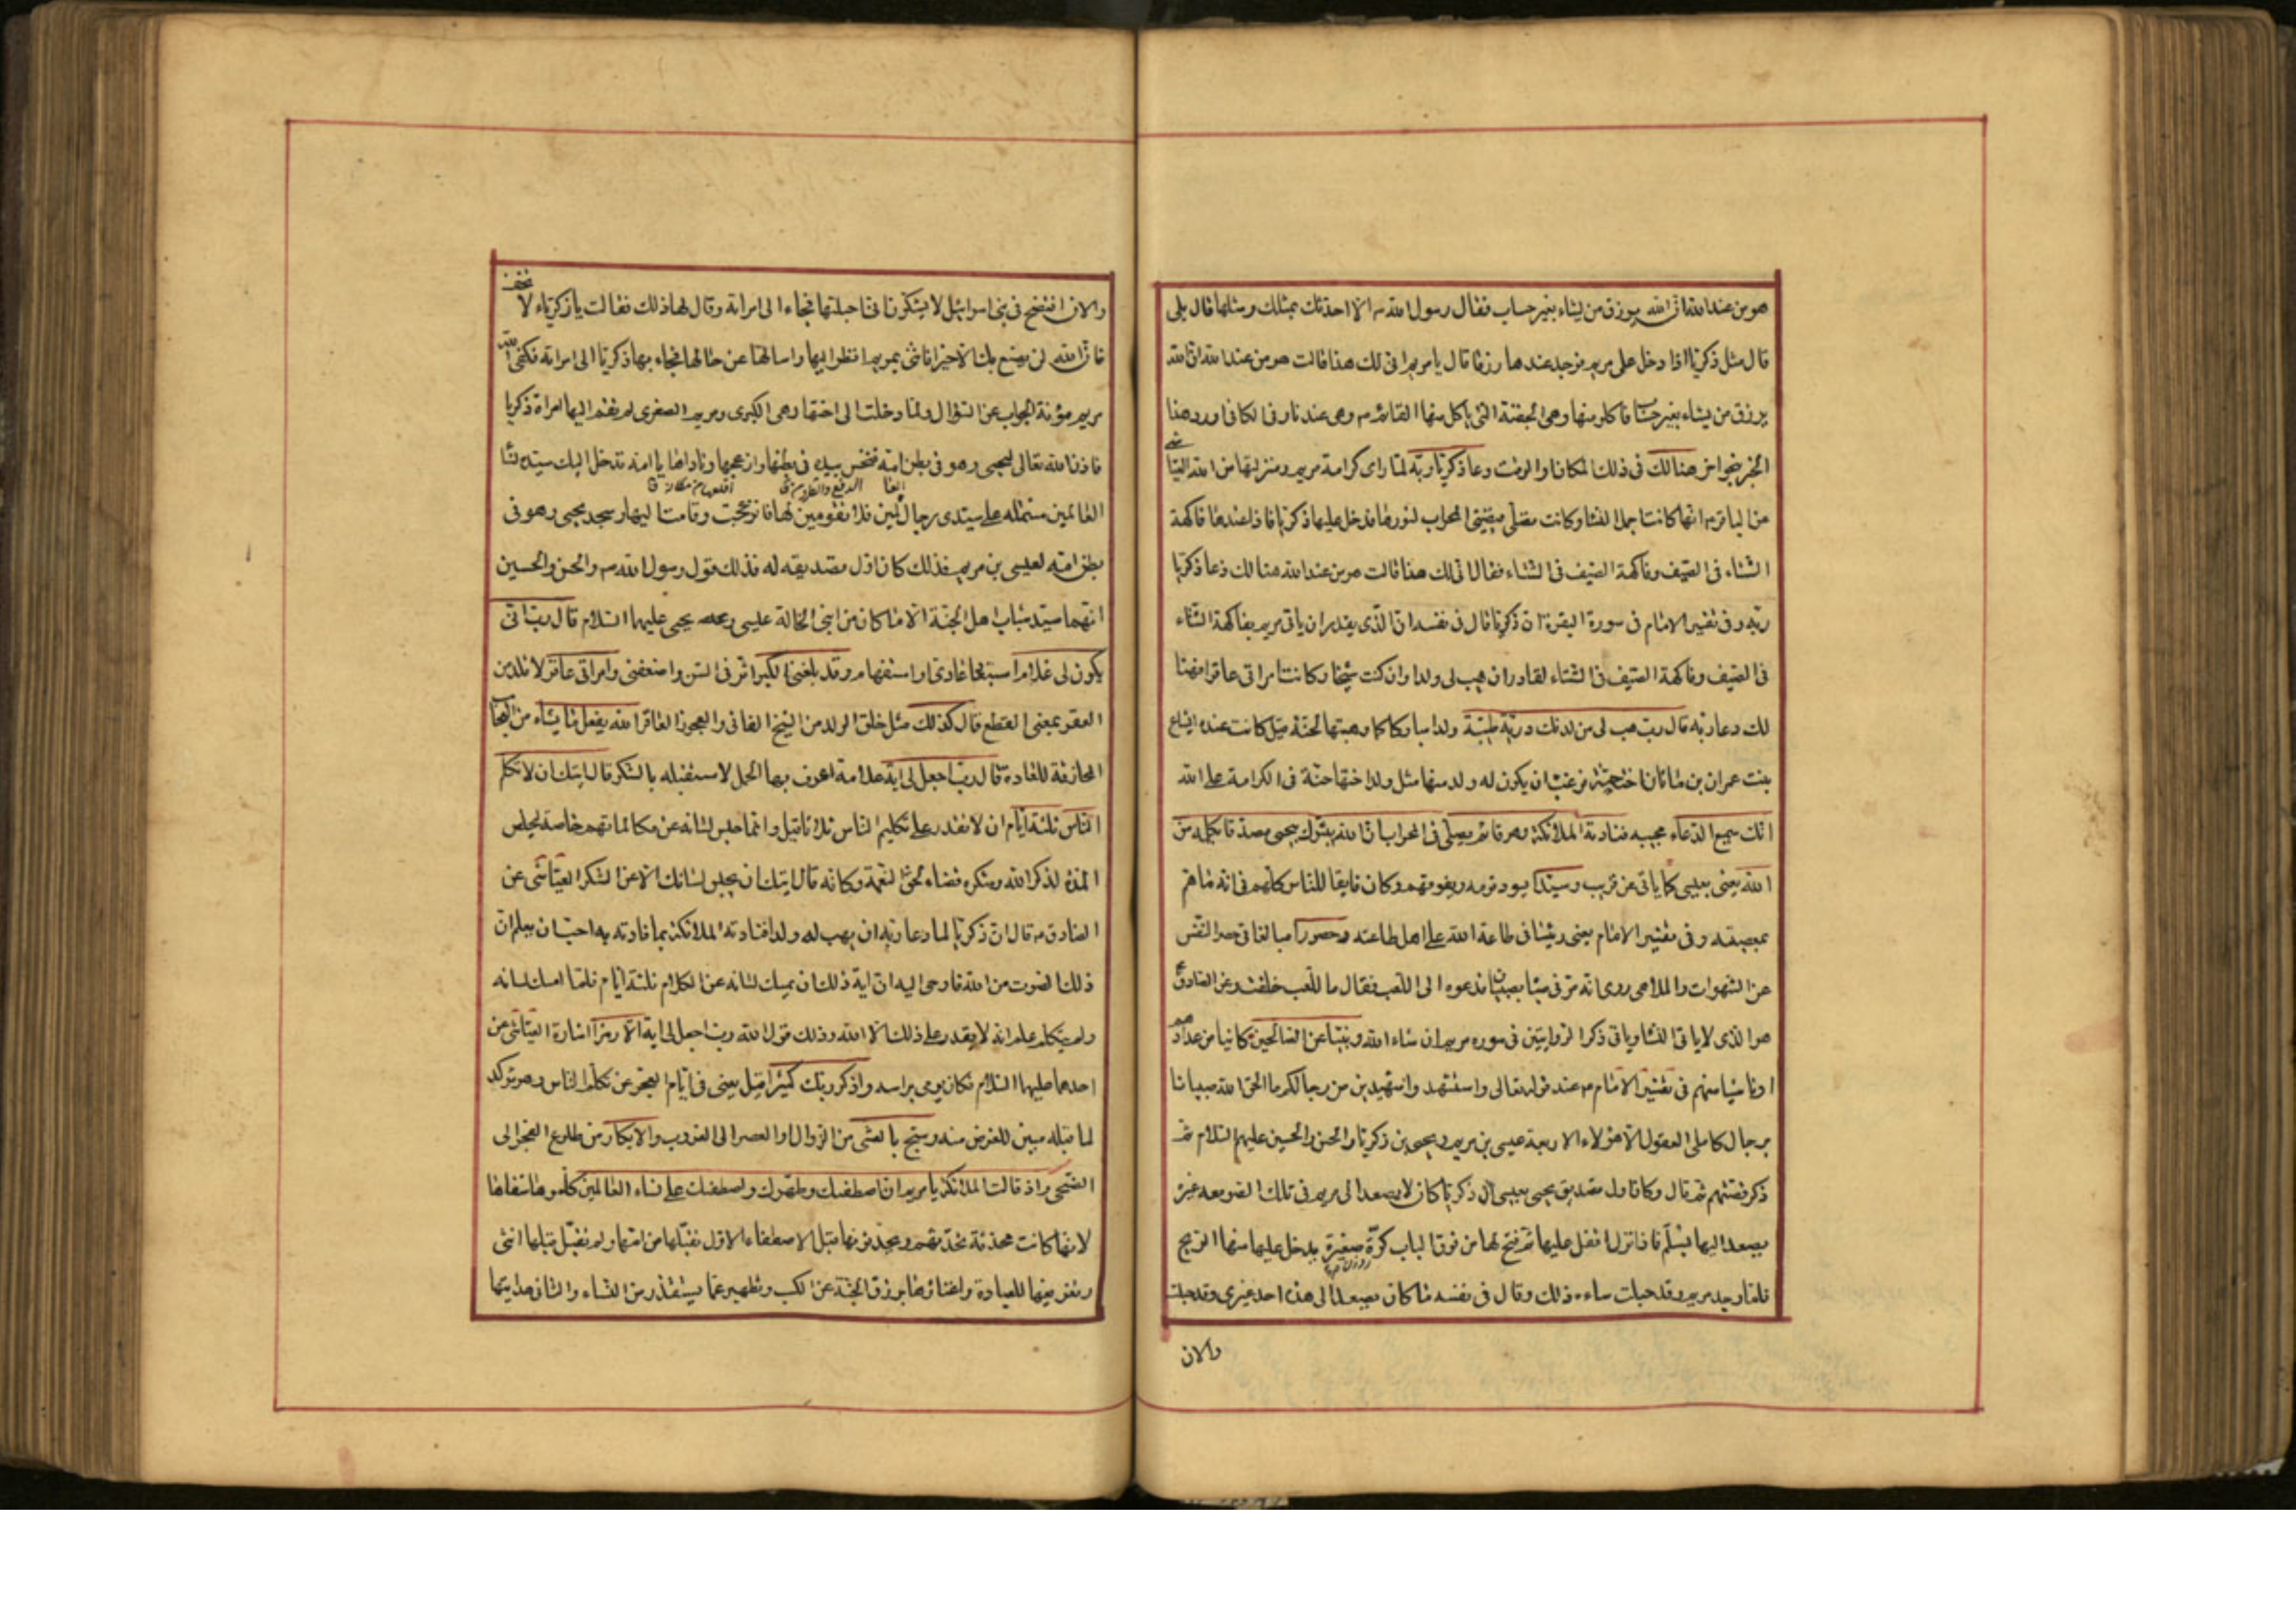 هو من عند الله ان الله يرزق من يشاء بغير حساب فقال رسول الله ص الا احدثك بمثلك ومثلها قال بلى
قال مثل زكريا اذا دخل على مريم فوجد عندها رزقا قال يا مريم انى لك هذا قالت هو من عند الله ان الله
يرزق من يشاء بغير حساب فاكلو منها وهى الجفنة التى ياكل منها القائم م وهى عندنا وفى الكافى اورد هذا
الخبر بنحو اخر هنالك فى ذلك المكان او الوقت دعا زكريا ربه لما راى كرامة مريم ومنزلتها من الله العياشى
عن الباقر م انها كانت اجمل النساء وكانت تصلى فيضئ المحراب لنورها فدخل عليها زكريا فاذا عندها فاكهة
الشتاء فى الصيف وفاكهة الصيف فى الشتاء فقال انى لك هذا قالت هو من عند الله هنالك دعا زكريا
ربه وفى تفسير الامام فى سورة البقرة ان زكريا قال فى نفسه ان الذى يقدر ان ياتى مريم بفاكهة الشتاء
فى الصيف وفاكهة الصيف فى الشتاء لقادر ان يهب لى ولدا وان كنت شيخا وكانت امراتى عاقرا فهنا
لك دعا ربه قال رب هب لى من لدنك ذرية طيبة ولدا مباركا كما وهبتها لحنة قيل كانت عنده ايشاع
بنت عمران بن ماثان اخت حنة فرغب ان يكون له ولد منها مثل ولد اختها حنة فى الكرامة على الله
انك سميع الدعاء مجيبه فنادته الملائكة وهو قائم يصلى فى المحراب ان الله يبشرك بيحيى مصدقا بكلمة من
الله يعنى بعيسى كما ياتى عن قريب وسيدا يسود قومه ويفوقهم وكان فايقا للناس كلهم فى انه ما هم
بمعصية وفى تفسير الامام يعنى رئيسا فى طاعة الله على اهل طاعته وحصورا مبالغا فى حصر النفس
عن الشهوات والملاهى روى انه مر فى صباه بصبيان فدعوه الى اللعب فقال ما للعب خلقت وعن الصادق ع
هو الذى لا ياتى النساء وياتى ذكر الروايتين فى سورة مريم ان شاء الله ونبيا من الصالحين كائنا من عداد هم
او ناشيا منهم فى تفسير الامام م عند قوله تعالى واستشهدوا شهيدين من رجالكم ما الحق الله صبيانا
برجال كاملى العقول الا هؤلاء الاربعة عيسى بن مريم ويحيى بن زكريا والحسن والحسين عليهم السلام ثم
ذكر قصتهم ثم قال وكان اول تصديق يحيى بعيسى ان زكريا كان لا يصعد الى مريم فى تلك الصومعة غيره
يصعد اليها بسلم فاذا نزل اقفل عليها ثم فتح لها من فوق الباب كوة صغيرة يدخل عليها منها الريح
فلما وجد مريم وقد حبلت ساءه ذلك وقال فى نفسه ما كان يصعد الى هذه احد غيرى وقد حبلت
والان
والان افتضح فى بنى اسرائيل لا يشكون انى احبلتها فجاء الى امراته وقال لها ذلك فقالت يا زكرياء لا تخف
فان الله لن يصنع بك الا خيرا فائتنى بمريم انظر اليها واسالها عن حالها فجاء بها زكريا الى امراته فكفى الله
مريم مؤنة الجواب عن السؤال ولما دخلت الى اختها وهى الكبرى ومريم الصغرى لم تقم اليها امراة زكريا
فاذن الله تعالى ليحيى وهو فى بطن امه فنخس بيده فى بطنها وازعجها وناداها يا امه تدخل اليك سيدة نساء
العالمين مشتملة على سيدى رجال العالمين فلا تقومين لها فانزعجت وقامت اليها وسجد يحيى وهو فى
بطن امه لعيسى بن مريم فذلك كان اول تصديقه له فذلك قول رسول الله ص والحسن والحسين
انهما سيد شباب اهل الجنة الا ما كان من ابنى الخالة عليسى ويحيى عليهما السلام قال رب انى
يكون لى غلام استبعاد عادى او استفهام وقد بلغنى الكبر اثر فى السن واضعفنى وامراتى عاقر لا تلد من
العقر بمعنى القطع قال كذلك مثل خلق الولد من الشيخ الفانى والعجوز العاقر الله يفعل ما يشاء من العجائب
الخارقة للعادة قال رب اجعل لى اية علامة اعرف بها الحمل لاستقبله بالشكر قال ايتك ان لا تكلم
الناس ثلثة ايام ان لا تقدر على تكليم الناس ثلاثا قيل وانما حبس لسانه عن مكالماتهم خاصة ليخلص
المدة لذكر الله وشكره قضاء لحق النعمة وكانه قال ايتك ان يحبس لسانك الا عن الشكر العياشى عن
الصادق م قال ان زكريا لما دعا ربه ان يهب له ولدا فنادته الملائكة بما نادته به احب ان يعلم ان
ذلك الصوت من الله فاوحى اليه ان اية ذلك ان يمسك لسانه عن الكلام ثلثة ايام فلما امسك لسانه
ولم يتكلم علم انه لا يقدر على ذلك الا الله وذلك قول الله رب اجعل لى اية الا رمزا اشارة العياشى عن
احدهما عليهما السلام فكان يومى براسه واذكر ربك كثيرا قيل يعنى فى ايام العجز عن تكلم الناس وهو توكيد
لما قبله مبين للغرض منه وسبح بالعشى من الزوال او العصر الى الغروب والابكار من طلوع الفجر الى
الضحى واذ قالت الملائكة يا مريم ان الله اصطفيك وطهرك واصطفيك على نساء العالمين كلموها شفاها
لانها كانت محدثة تحدثهم ويحدثونها قيل الاصطفاء الاول تقبلها من امها ولم تقبل قبلها انثى
وتفريغها للعبادة واغناؤها برزق الجنة عن الكسب وتطهيرها عما يستقذر من النساء والثانى هدايتها